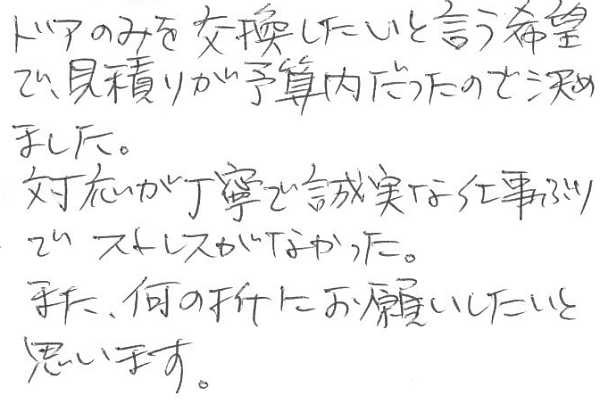 ドアのみを交換したいと言う希望
で、見積りが予算内だったので決め
ました。
対応が丁寧で誠実な仕事ぶり
で ストレスがなかった。
また、何かの折にお願いしたいと
思います。